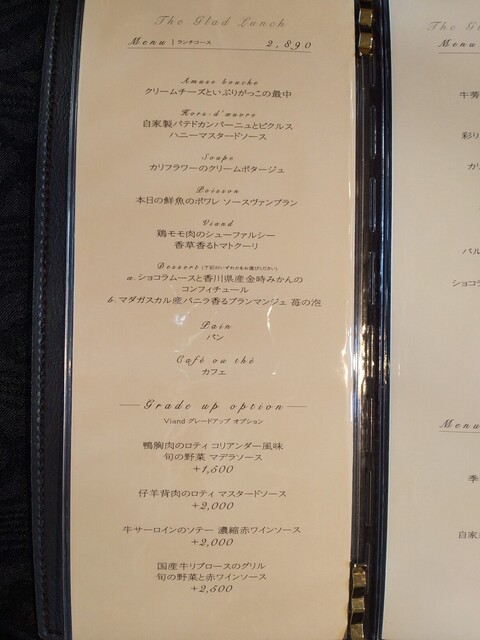 The Glad Lunch
Menu | ランチコース 2,890
Amuse bouche
クリームチーズといぶりがっこの最中
Hors-d'œuvre
自家製パテドカンパーニュとピクルス
ハニーマスタードソース
Soupe
カリフラワーのクリームポタージュ
Poisson
本日の鮮魚のポワレ ソースヴァンブラン
Viand
鶏モモ肉のシューファルシー
香草香るトマトクーリ
Dessert (下記のいずれかをお選びください)
a.ショコラムースと香川県産金時みかんの
コンフィチュール
b.マダガスカル産バニラ香るブランマンジェ 苺の泡
Pain
パン
Café ou thé
カフェ
Grade up option
Viand グレードアップ オプション
鴨胸肉のロティ コリアンダー風味
旬の野菜 マデラソース
+1,500
仔羊背肉のロティ マスタードソース
+2,000
牛サーロインのソテー 濃縮赤ワインソース
+2,000
国産牛リブロースのグリル
旬の野菜と赤ワインソース
+2,500
The Gla
Menu
彩り
カリ
バル
ショコラ
Menu
季
自家